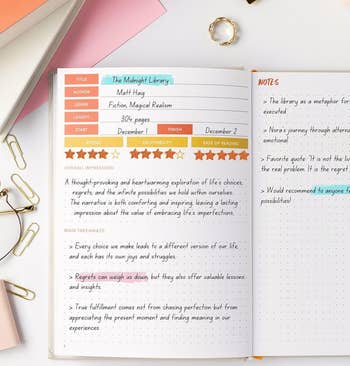 TITLE The Midnight Library
AUTHOR Matt Haig
GENRE Fiction, Magical Realism
LENGTH 304 pages
START December 1 FINISH December 2
EASE OF READING
OVERALL IMPRESSION
A thought-provoking and heartwarming exploration of life's choices,
regrets, and the infinite possibilities we hold within ourselves.
The narrative is both comforting and inspiring, leaving a lasting
impression about the value of embracing life's imperfections.
MAIN TAKEAWAYS
> Every choice we make leads to a different version of our life,
and each has its own joys and struggles.
> Regrets can weigh us down, but they also offer valuable lessons
and insights.
> True fulfillment comes not from chasing perfection but from
appreciating the present moment and finding meaning in our
experiences.
NOTES
> The library as a metaphor for
executed
> Nora's journey through altern
emotional
> Favorite quote "It is not the liv
the real problem. It is the regret
> Would recommend to anyone f
possibilities!